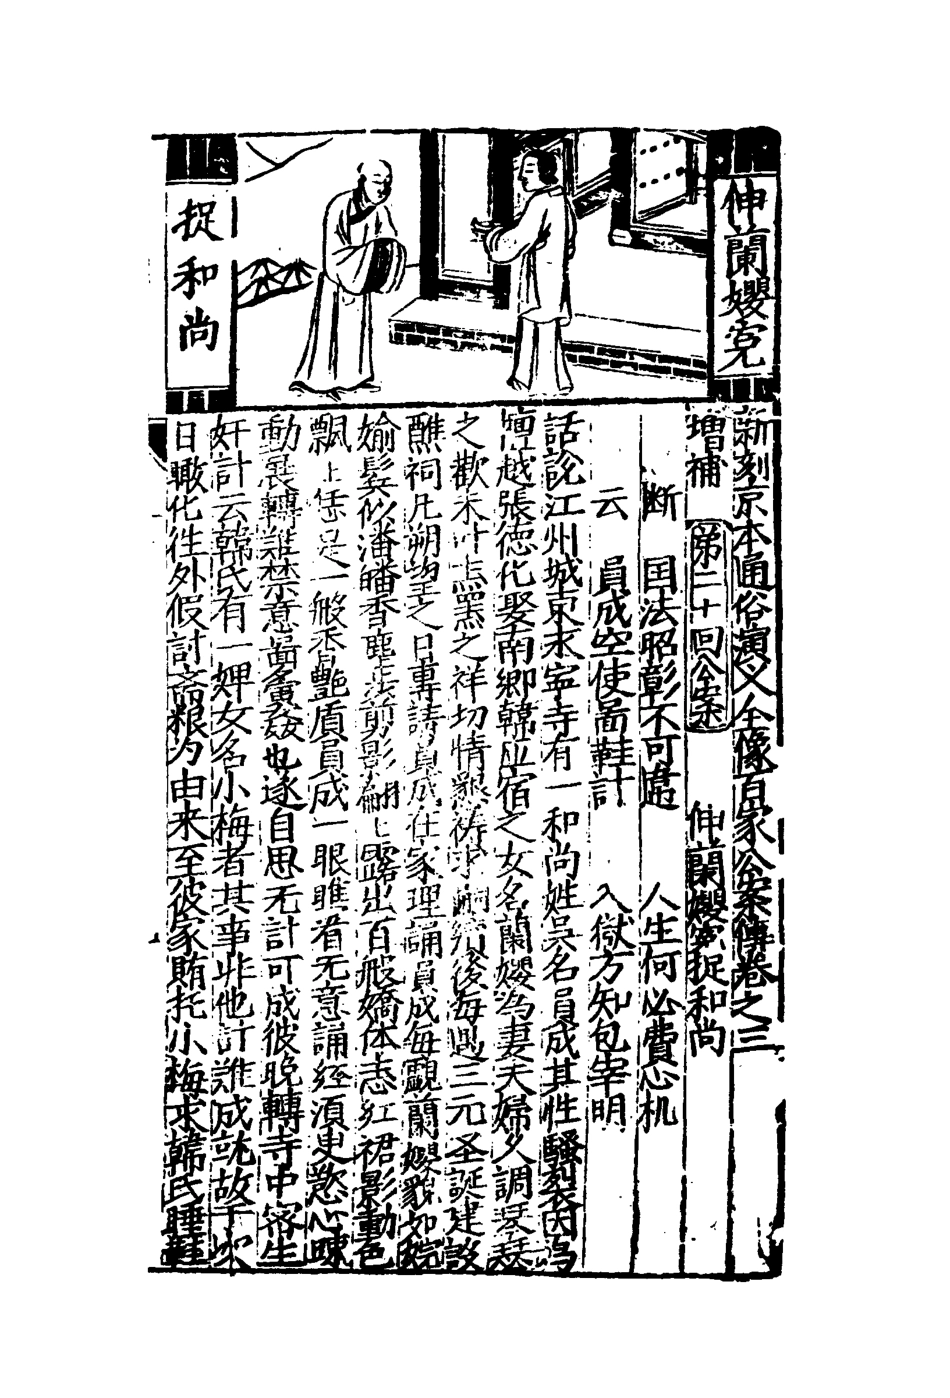 伸蘭嬰寃
捉和尚
新刻京本通俗演义全像百家公案傳卷之三
增補 第二十回公案 伸蘭嬰寃捉和尚
断 国法昭彰不可違 人生何必費心机
云 員成空使啚鞋計 入獄方知包宰明
話說江州城東永寧寺有一和尚姓吳名員成其性騷裂因为
越張德化娶南鄉韓应宿之女名蘭嬰為妻夫婦久調琴瑟
之歡未叶熊羆之祥切情懇祷求嗣續後每遇三元圣誕建設
醮祠凡朔望之日專請員成在家理誦員成每覷蘭嬰貌如
媮髮似潘皤香塵 剪影翩〻露出百般嬌体态红裙影動色
飄〻恁是一般香艷質員成一眼瞧着无意誦经湏臾慾心
動展轉難禁意啚賔姦也遂自思无計可成彼晚轉寺中窓生
奸計云韓氏有一婢女名小梅者其事非他計難成就故于次
日瞰化往外假討斋粮为由来至彼家賄托小梅求韓氏睡鞋